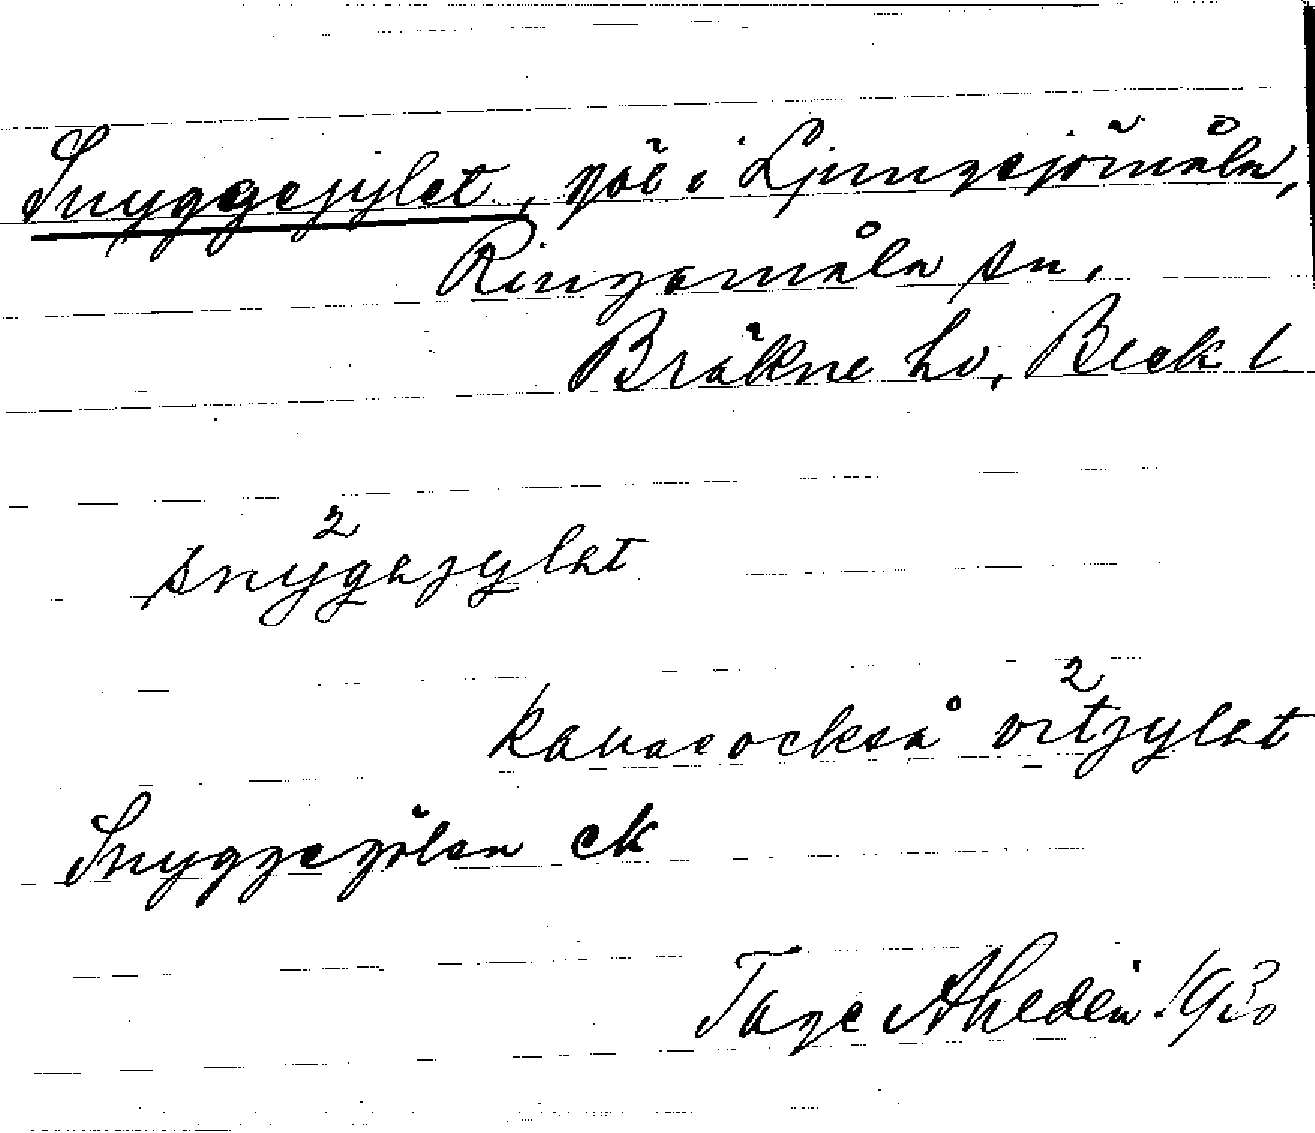 Snyggejylet, göl i Ljungsjömåla,
Ringamåla sn,
Bräkne hd, Bleck l
2
snygajylet
kallas också vitjylet
2
Snyggegölen ek
Tage Ahldén 1930